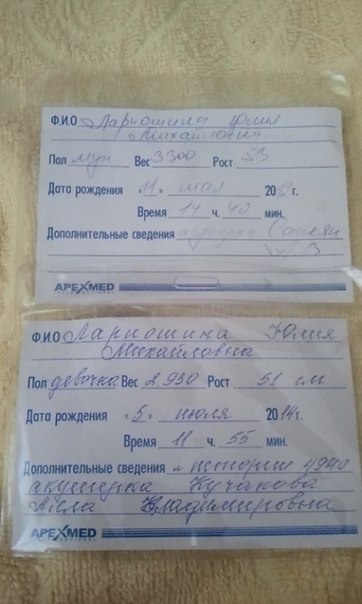 Ф.И.О Ларюшина Юлия
Михайловна
Пол муж Вес 3300 Рост 53
Дата рождения «11» мая 20 г.
Время 14 ч. 40 мин.
Дополнительные сведения акушерка
APEXMED
Ф.И.О Ларюшина Юлия
Михайловна
Пол девочка Вес 2.950 Рост 51 см
Дата рождения «5» июля 2014г.
Время 11 ч. 55 мин.
Дополнительные сведения № истории 4940
акушерка Кучакова
Владимировна
APEXMED